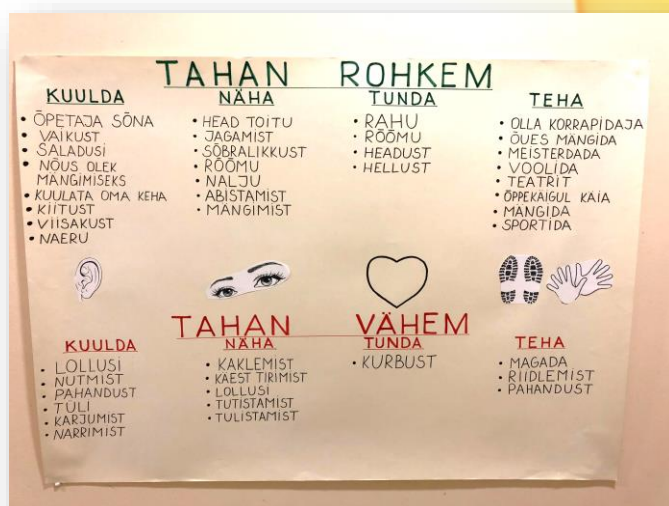 TAHAN ROHKEM
KUULDA
• ÕPETAJA SÕNA
• VAIKUST
• SALADUSI
• NÕUS OLEK
MÄNGIMISEKS
• KUULATA OMA KEHA
• KIITUST
• VIISAKUST
• NAERU
NÄHA
• HEAD TOITU
• JAGAMIST
• SÕBRALIKKUST
• RÕÕMU
• NALJU
• ABISTAMIST
• MÄNGIMIST
TUNDA
• RAHU
• RÕÕMU
• HEADUST
• HELLUST
TEHA
• OLLA KORRAPIDAJA
• ÕUES MÄNGIDA
• MEISTERDADA
• VOOLIDA
• TEATRIT
• ÕPPEKÄIGUL KÄIA
• MÄNGIDA
• SPORTIDA
TAHAN VÄHEM
KUULDA
• LOLLUSI
• NUTMIST
• PAHANDUST
• TÜLI
• KARJUMIST
• NARRIMIST
NÄHA
• KAKLEMIST
• KÄEST TIRIMIST
• LOLLUSI
• TUTISTAMIST
• TULISTAMIST
TUNDA
• KURBUST
TEHA
• MAGADA
• RIIDLEMIST
• PAHANDUST